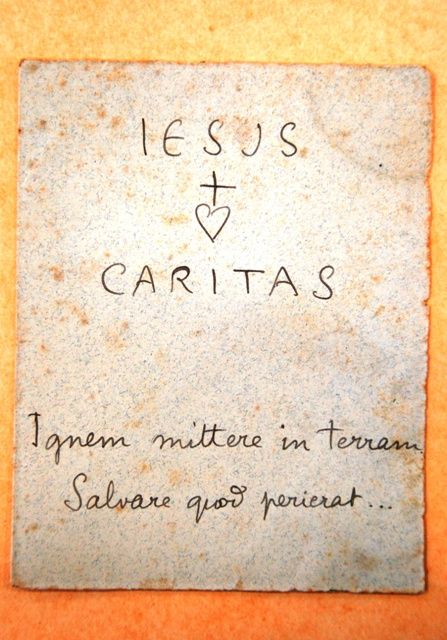 IESUS
CARITAS
Ignem mittere in terram.
Salvare quod perierat...